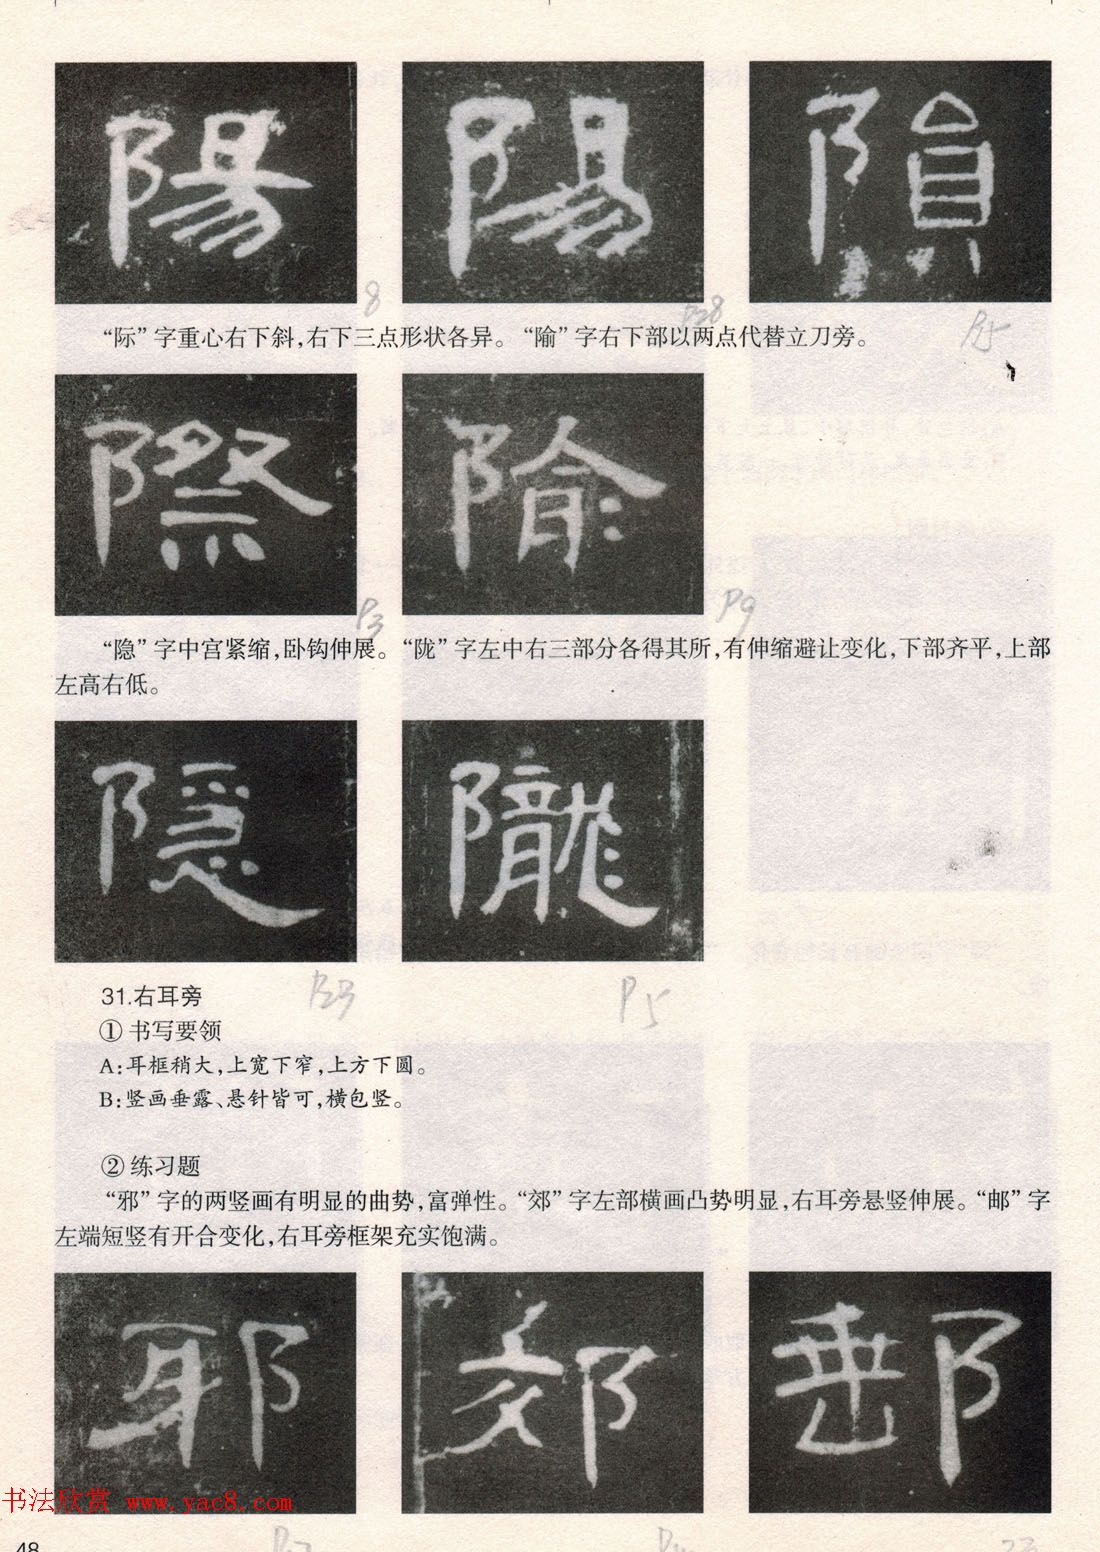 陽 陽 隕
8 P28 P15
“际”字重心右下斜，右下三点形状各异。“隃”字右下部以两点代替立刀旁。
際 隃
P3 P9
“隐”字中宫紧缩，卧钩伸展。“陇”字左中右三部分各得其所，有伸缩避让变化，下部齐平，上部
左高右低。
隱 隴
P23 P5
31.右耳旁
① 书写要领
A:耳框稍大，上宽下窄，上方下圆。
B:竖画垂露、悬针皆可，横包竖。
② 练习题
“邪”字的两竖画有明显的曲势，富弹性。“郊”字左部横画凸势明显，右耳旁悬竖伸展。“邮”字
左端短竖有开合变化，右耳旁框架充实饱满。
邪 郊 郵
书法欣赏 www.yac8.com
48